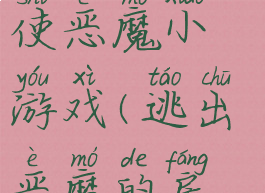 使恶魔小
yóu xì táo chū
游戏(逃出
è mó de fáng
恶魔的房